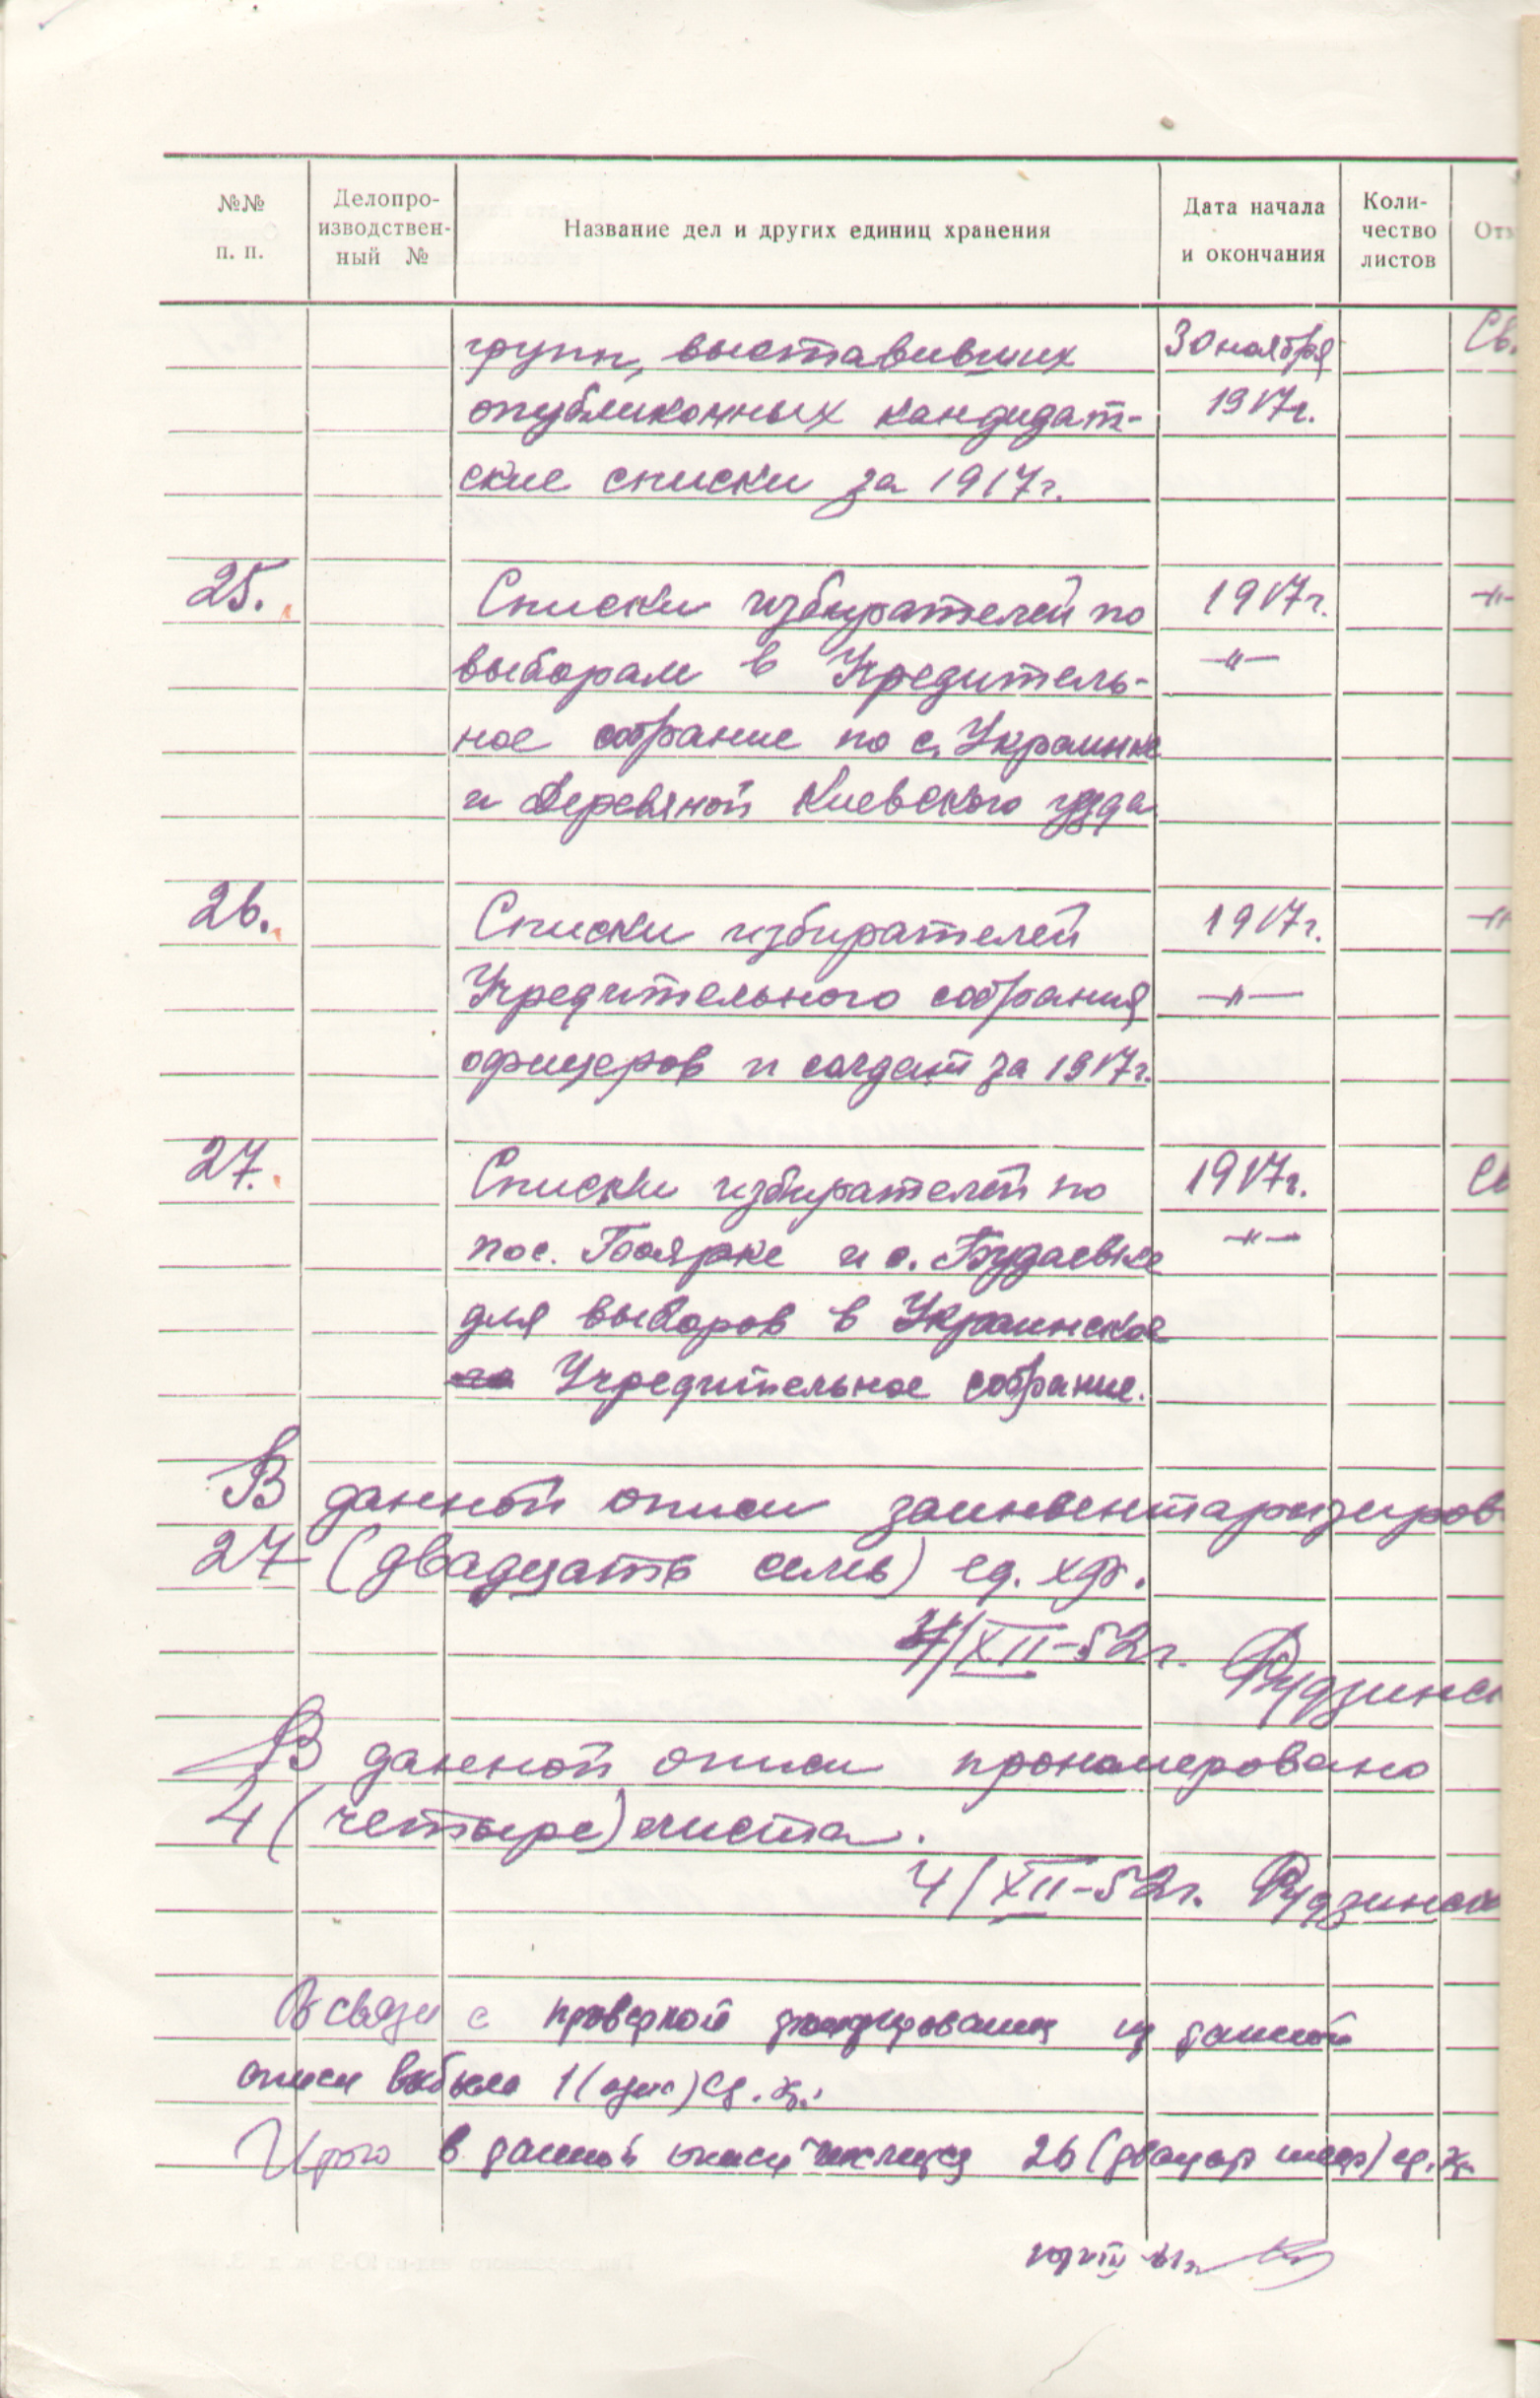 №№ п. п.
Делопро-
изводствен-
ный №
Название дел и других единиц хранения
Дата начала
и окончания
Коли-
чество
листов
Отм
групп, выставивших 30 ноября Св.
опубликонных кандидат- 1917г.
ские списки за 1917г.
25. Списки избирателей по 1917г. -"-
выборам в Учредитель- -"-
ное собрание по с. Украинке
и Деревяной Киевского уезда
26. Списки избирателей 1917г. -"-
Учредительного собрания -"-
офицеров и солдат за 1917г.
27. Списки избирателей по 1917г. Св
пос. Боярке и с. Будаевке -"-
для выборов в Украинское
Учредительное собрание.
В данной описи заинвентаризиров
27 (двадцать семь) ед. хр.
4/XII-52г. Рудзинск
В данной описи прономеровано
4 (четыре) листа.
4/XII-52г. Рудзинск
В связи с проверкой фондирования из данной
описи выбыло 1 (одна) ед. хр.
Итого в данной описи числится 26 (двадцать шесть) ед. хр.